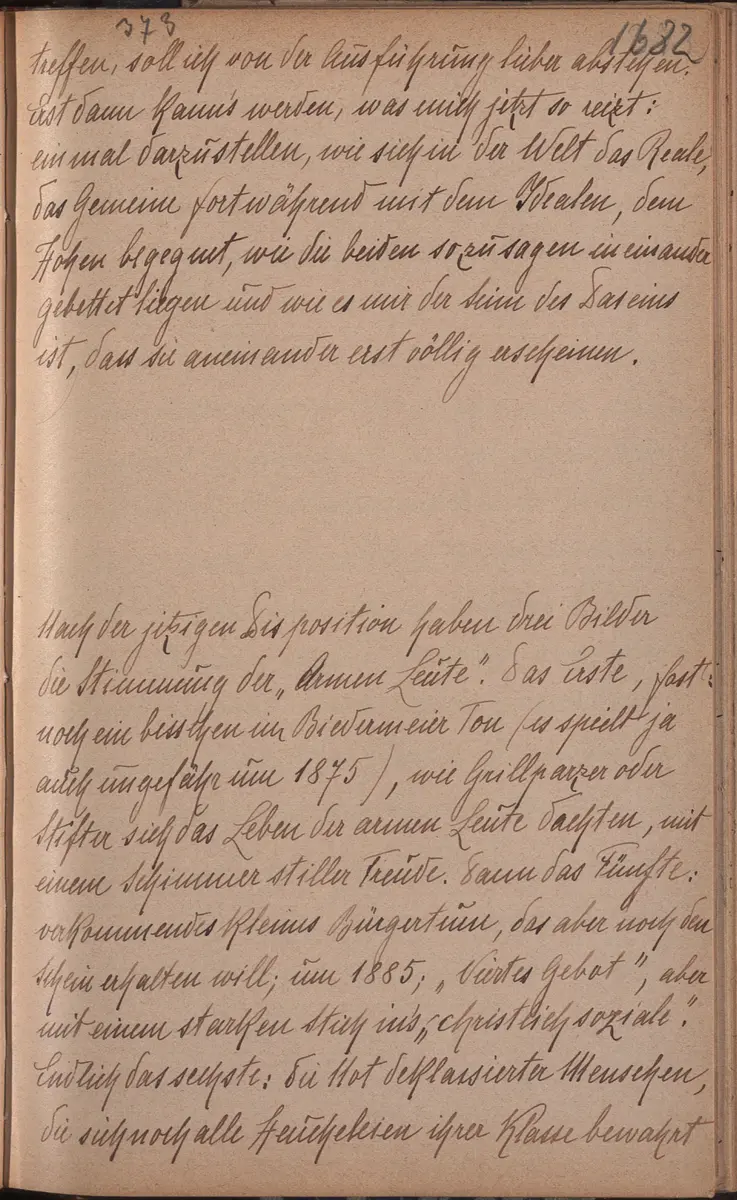 373
1682
treffen, soll ich von der Ausführung lieber abstehen.
Erst dann kann's werden, was mich jetzt so reizt:
einmal darzustellen, wie sich in der Welt das Reale,
das Gemeine fortwährend mit dem Idealen, dem
Hohen begegnet, wie die beiden sozusagen in einander
gebettet liegen und wie es mir der Sinn des Daseins
ist, dass sie aneinander erst völlig erscheinen.
Nach der jetzigen Disposition haben drei Bilder
die Stimmung der „Armen Leute". Das Erste, fast
noch ein bisschen im Biedermeier Ton (es spielt ja
auch ungefähr um 1875), wie Grillparzer oder
Stifter sich das Leben der armen Leute dachten, mit
einem Schimmer stiller Freude. Dann das Fünfte:
verkommendes kleines Bürgertum, das aber noch den
Schein erhalten will; um 1885; „Viertes Gebot", aber
mit einem starken Stich in's „christlich soziale".
Endlich das sechste: die Not deklassierter Menschen,
die sich noch alle Heucheleien ihrer Klasse bewahrt